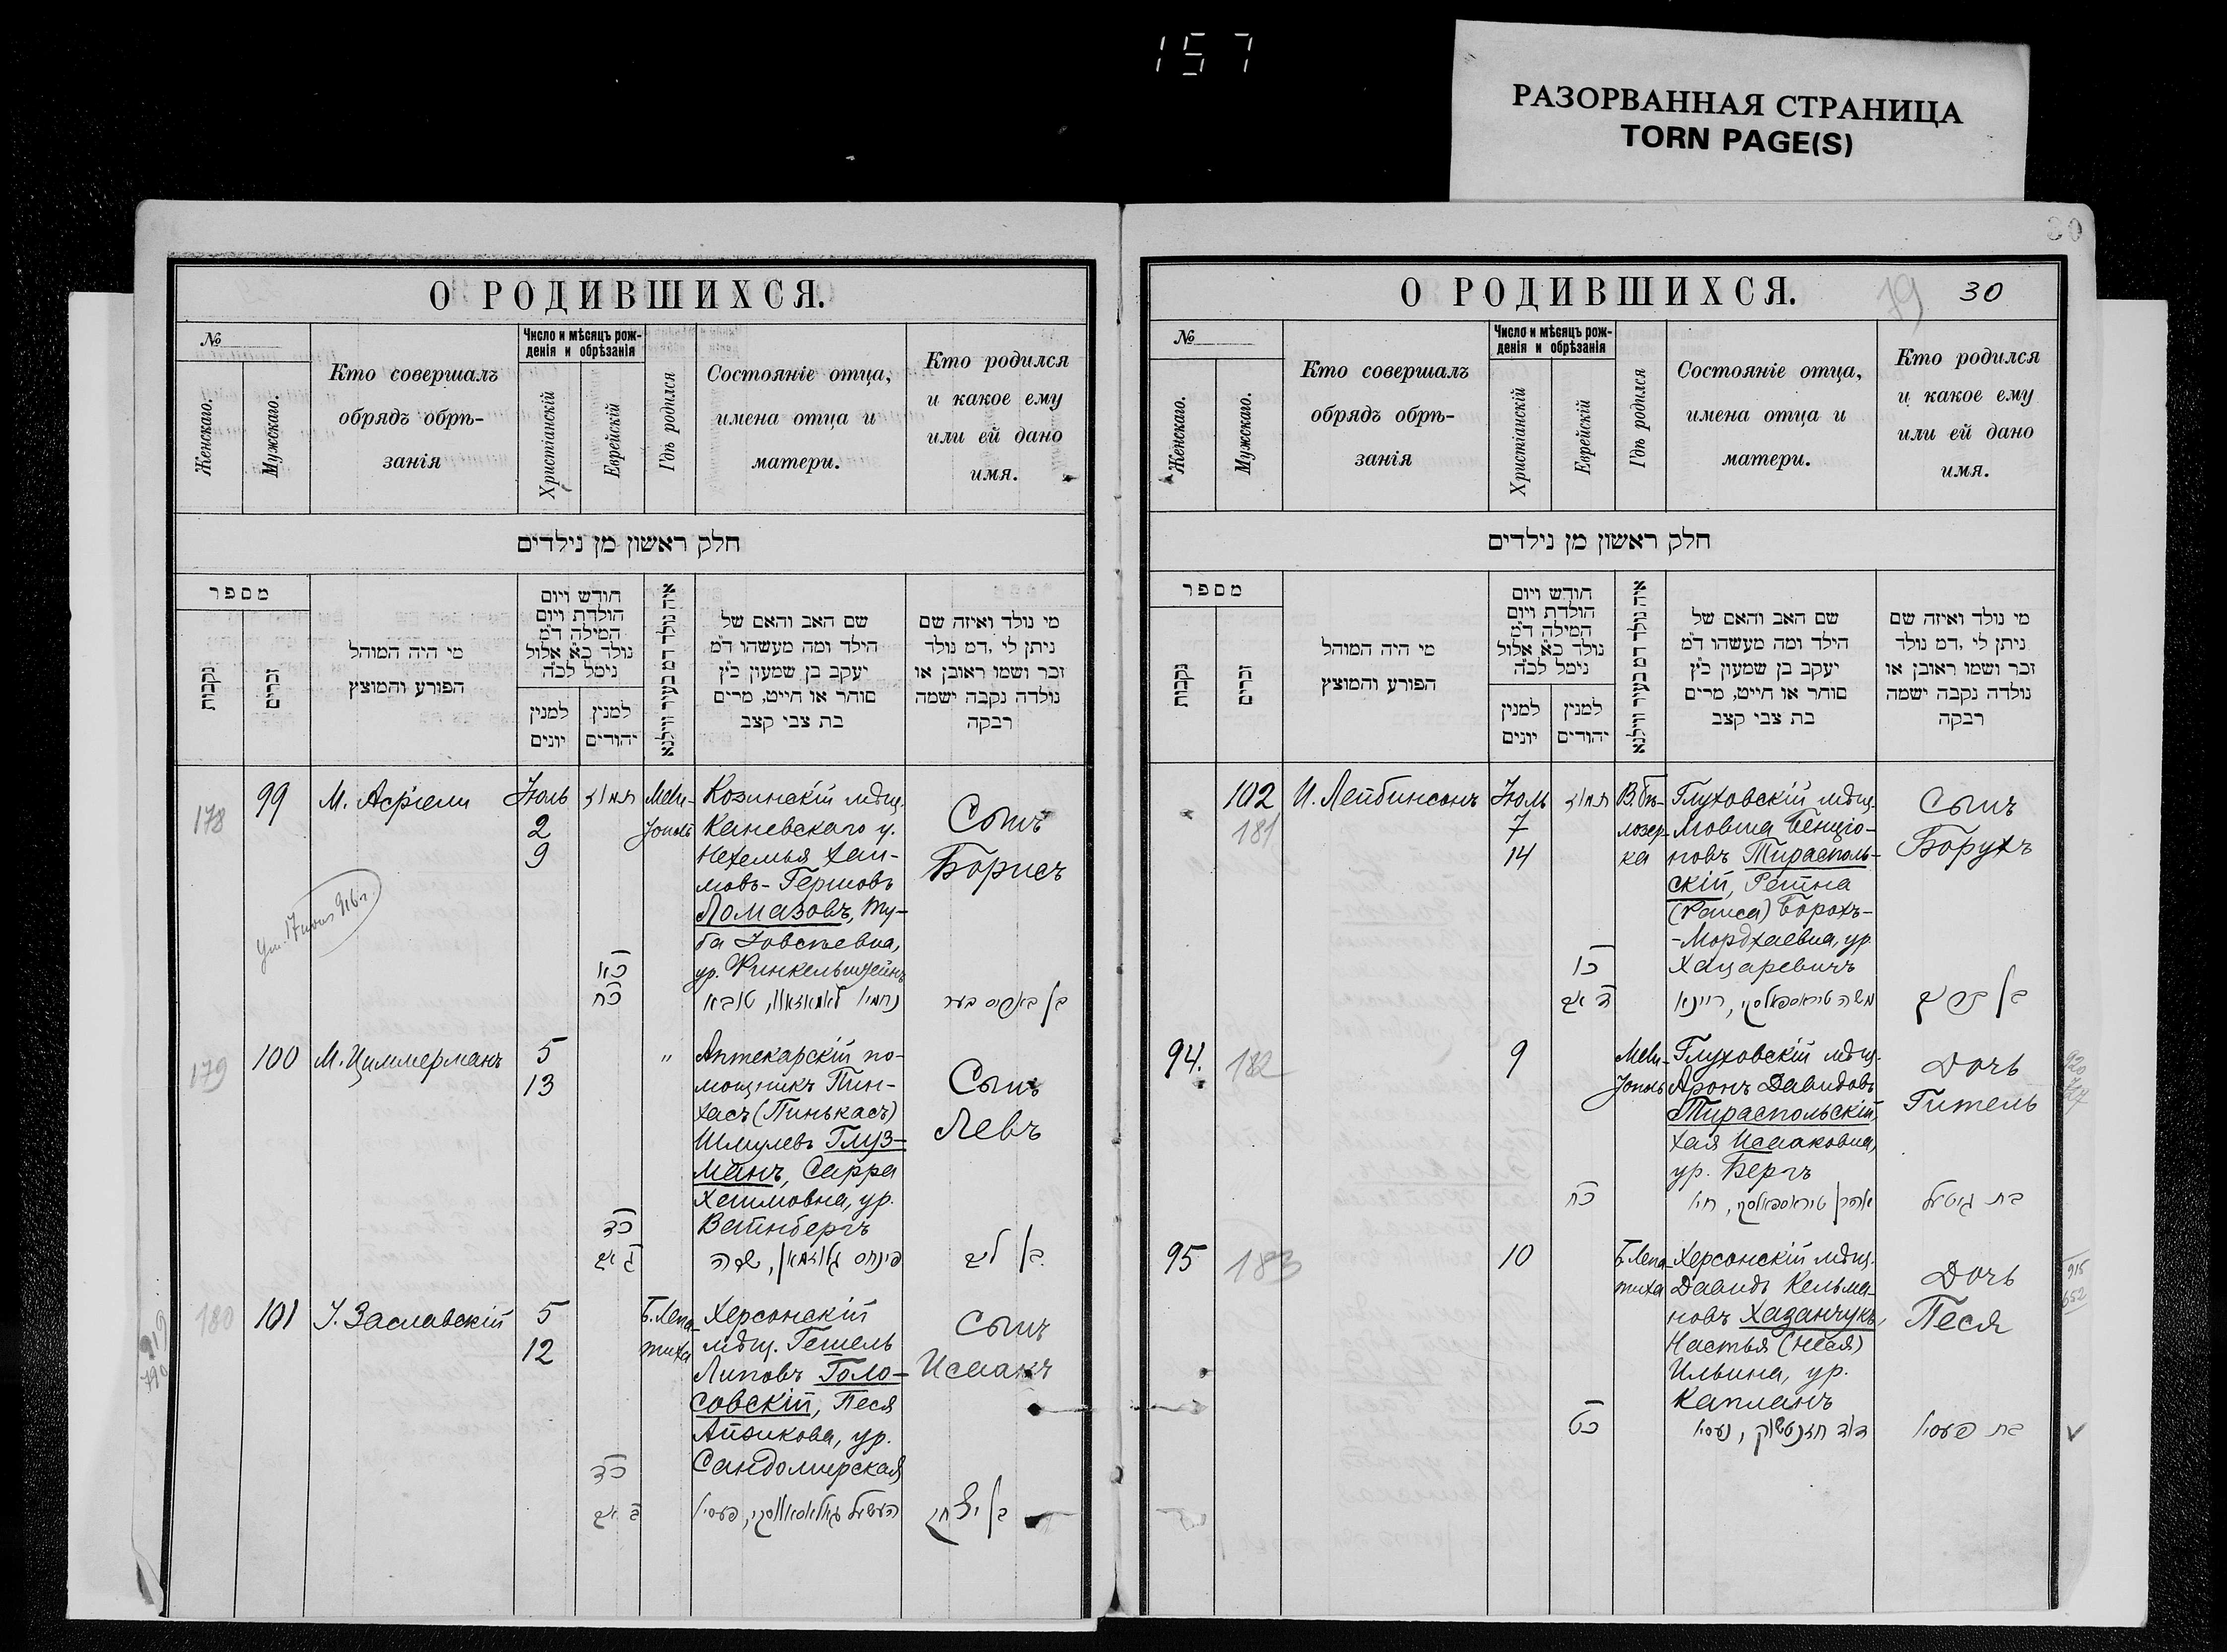 157
РАЗОРВАННАЯ СТРАНИЦА
TORN PAGE(S)
О РОДИВШИХСЯ.
№
Женскаго.
Мужскаго.
Кто совершалъ
обрядъ обрѣ-
занія
Число и мѣсяцъ рож-
денія и обрѣзанія
Христіанскій
Еврейскій
Гдѣ родился
Состояніе отца,
имена отца и
матери.
Кто родился
и какое ему
или ей дано
имя.
חלק ראשון מן נילדים
מספר
נקבות
זכרים
מי היה המוהל
הפורע והמוצץ
חודש ויום
הולדת ויום
המילה ד״מ
נולד כ״א אלול
נימל לכ״ה
למנין
יונים
למנין
יהודים
איה נולד דמ בעיר ווילנא
שם האב והאם של
הילד ומה מעשהו ד״מ
יעקב בן שמעון כ״ץ
סוחר או חייט, מרים
בת צבי קצב
מי נולד ואיזה שם
ניתן לי ,דמ נולד
זכר ושמו ראובן או
נולדה נקבה ישמה
רבקה
178
99
М. Асріели
Іюль
2
9
תמוז
כא
כח
Мели-
тополь
Козинскій мѣщ.
Каневскаго у.
Нехемья Хаи-
мовъ-Гершовъ
Ломазовъ, Ту-
ба Іовспевна,
ур. Финкельштейнъ
Сынъ
Борисъ
179
100
М. Циммерманъ
5
13
כד
"
Аптекарскій по-
мощникъ Пин-
хасъ (Пинькасъ)
Шмулевъ Глуз-
манъ, Сарра
Хаимовна, ур.
Вайнбергъ
Сынъ
Левъ
בן ליב
180
101
І. Заславскій
5
12
כד
Б. Лепа-
тиха
Херсонскій
мѣщ. Гешель
Липовъ Голо-
совскій, Песя
Айзикова, ур.
Сандомирская
Сынъ
Исаакъ
בן יצחק
919
О РОДИВШИХСЯ.
79
30
№
Женскаго.
Мужскаго.
Кто совершалъ
обрядъ обрѣ-
занія
Число и мѣсяцъ рож-
денія и обрѣзанія
Христіанскій
Еврейскій
Гдѣ родился
Состояніе отца,
имена отца и
матери.
Кто родился
и какое ему
или ей дано
имя.
חלק ראשון מן נילדים
מספר
נקבות
זכרים
מי היה המוהל
הפורע והמוצץ
חודש ויום
הולדת ויום
המילה ד״מ
נולד כ״א אלול
נימל לכ״ה
למנין
יונים
למנין
יהודים
איה נולד דמ בעיר ווילנא
שם האב והאם של
הילד ומה מעשהו ד״מ
יעקב בן שמעון כ״ץ
סוחר או חייט, מרים
בת צבי קצב
מי נולד ואיזה שם
ניתן לי ,דמ נולד
זכר ושמו ראובן או
נולדה נקבה ישמה
רבקה
102
181
И. Лейбинсонъ
Іюль
7
14
תמוז
כו
В. Бѣ-
лозер-
ка
Глуховскій мѣщ.
Мовша Бенціо-
новъ Тирасполь-
скій, Рейна
(Раиса) Борохъ-
-Мордхаевна, ур.
Хацаревичъ
משה טיראספאלסקי,ריינא
Сынъ
Борухъ
94.
182
9
כח
Мели-
тополь
Глуховскій мѣщ.
Аронъ Давидовъ
Тираспольскій,
Хая Исааковна,
ур. Бергъ
אהרן טיראספאלסקי, חיה
Дочь
Гитель
בת גיטעל
95
183
10
כט
Б. Лепа-
тиха
Херсонскій мѣщ.
Давидъ Кельма-
новъ Хазанчукъ,
Настья (Неся)
Ильина, ур.
Капланъ
Дочь
Песя
915
652